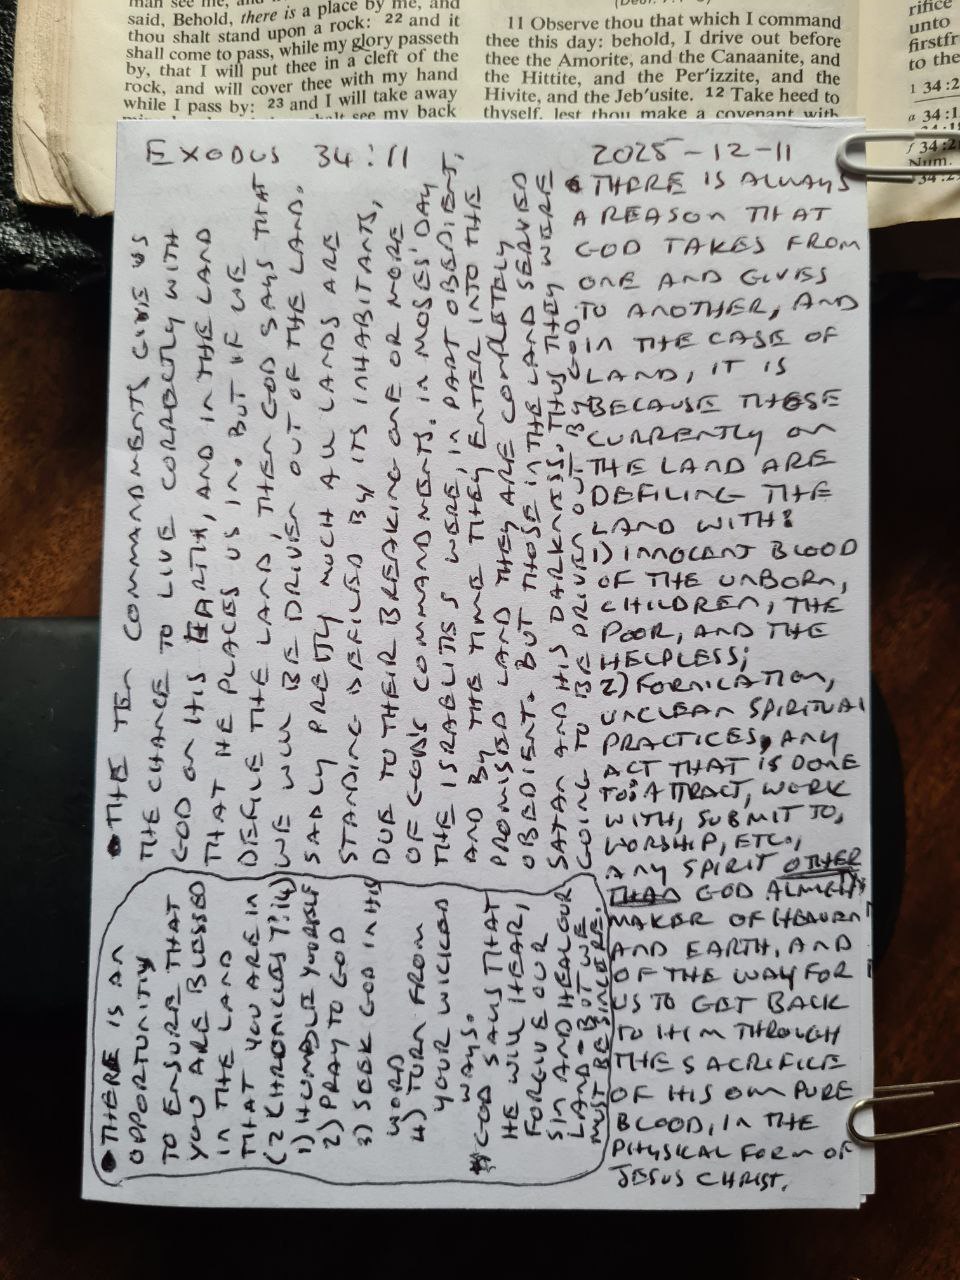 man see me, and
said, Behold, there is a place by me, and
thou shalt stand upon a rock: 22 and it
shall come to pass, while my glory passeth
by, that I will put thee in a cleft of the
rock, and will cover thee with my hand
while I pass by: 23 and I will take away
shalt see my back
11 Observe thou that which I command
thee this day: behold, I drive out before
thee the Amorite, and the Canaanite, and
the Hittite, and the Per′izzite, and the
Hivite, and the Jeb′usite. 12 Take heed to
thyself, lest thou make a covenant with
rifice
unto
firstfr
to the
1 34:2
a 34:1
f 34:2
Num.
34:2
EXODUS 34:11
2025-12-11
• THERE IS ALWAYS
A REASON THAT
GOD TAKES FROM
ONE AND GIVES
TO ANOTHER, AND
IN THE CASE OF
LAND, IT IS
BECAUSE THOSE
CURRENTLY ON
THE LAND ARE
DEFILING THE
LAND WITH:
1) INNOCENT BLOOD
OF THE UNBORN,
CHILDREN, THE
POOR, AND THE
HELPLESS;
2) FORNICATION,
UNCLEAN SPIRITUAL
PRACTICES, ANY
ACT THAT IS DONE
TO: ATTRACT, WORK
WITH, SUBMIT TO,
WORSHIP, ETC.,
ANY SPIRIT OTHER
THAN GOD ALMIGHTY
MAKER OF HEAVEN
AND EARTH, AND
OF THE WAY FOR
US TO GET BACK
TO HIM THROUGH
THE SACRIFICE
OF HIS OWN PURE
BLOOD, IN THE
PHYSICAL FORM OF
JESUS CHRIST.
• THE TEN COMMANDMENTS GIVE US
THE CHANCE TO LIVE CORRECTLY WITH
GOD ON HIS EARTH, AND IN THE LAND
THAT HE PLACES US IN. BUT IF WE
DEFILE THE LAND, THEN GOD SAYS THAT
WE WILL BE DRIVEN OUT OF THE LAND.
SADLY PRETTY MUCH ALL LANDS ARE
STANDING DEFILED BY ITS INHABITANTS,
DUE TO THEIR BREAKING ONE OR MORE
OF GOD'S COMMANDMENTS. IN MOSES' DAY
THE ISRAELITES WERE, IN PART OBEDIENT,
AND BY THE TIME THEY ENTER INTO THE
PROMISED LAND THEY ARE COMPLETELY
OBEDIENT. BUT THOSE IN THE LAND SERVED
SATAN AND HIS DARKNESS. THUS THEY WERE
GOING TO BE DRIVEN OUT BY GOD.
• THERE IS AN
OPPORTUNITY
TO ENSURE THAT
YOU ARE BLESSED
IN THE LAND
THAT YOU ARE IN
(2 CHRONICLES 7:14)
1) HUMBLE YOURSELF
2) PRAY TO GOD
3) SEEK GOD IN HIS
WORD
4) TURN FROM
YOUR WICKED
WAYS.
* GOD SAYS THAT
HE WILL HEAR,
FORGIVE OUR
SIN AND HEAL OUR
LAND - BUT WE
MUST BE SINCERE.